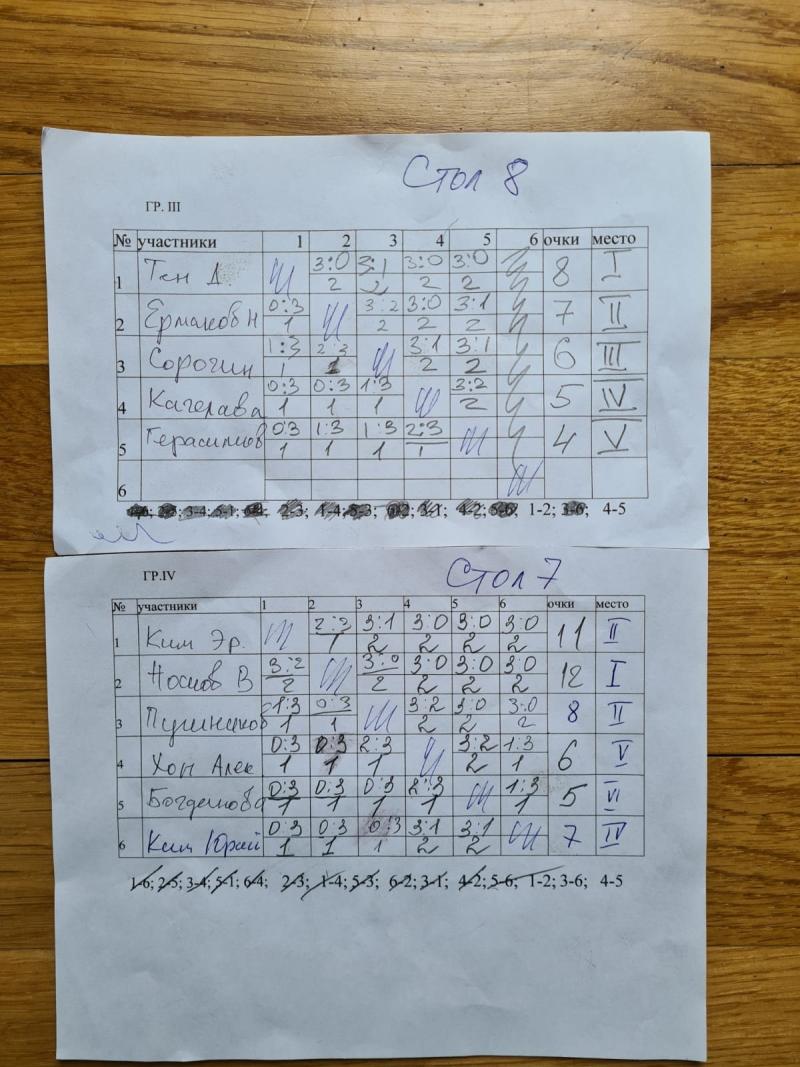 Стол 8
ГР. III
№ участники 1 2 3 4 5 6 очки место
1 Тен Д. 3:0 3:1 3:0 3:0 8 I
2 2 2 2
2 Ермаков Н 0:3 3:2 3:0 3:1 7 II
1 2 2 2
3 Сорочин 1:3 2:3 3:1 3:1 6 III
1 1 2 2
4 Кагелава 0:3 0:3 1:3 3:2 5 IV
1 1 1 2
5 Герасимов 0:3 1:3 1:3 2:3 4 V
1 1 1 1
6
1-6; 2-5; 3-4; 5-1; 6-4; 2-3; 1-4; 5-3; 6-2; 3-1; 4-2; 5-6; 1-2; 3-6; 4-5
Стол 7
ГР.IV
№ участники 1 2 3 4 5 6 очки место
1 Ким Эр. 2:3 3:1 3:0 3:0 3:0 11 II
1 2 2 2 2
2 Носков В 3:2 3:0 3:0 3:0 3:0 12 I
2 2 2 2 2
3 1:3 0:3 3:2 3:0 3:0 8 II
1 1 2 2 2
4 Хон Алек 0:3 0:3 2:3 3:2 1:3 6 V
1 1 1 2 1
5 Богданова 0:3 0:3 0:3 2:3 1:3 5 VI
1 1 1 1 1
6 Ким Юрай 0:3 0:3 0:3 3:1 3:1 7 IV
1 1 1 2 2
1-6; 2-5; 3-4; 5-1; 6-4; 2-3; 1-4; 5-3; 6-2; 3-1; 4-2; 5-6; 1-2; 3-6; 4-5